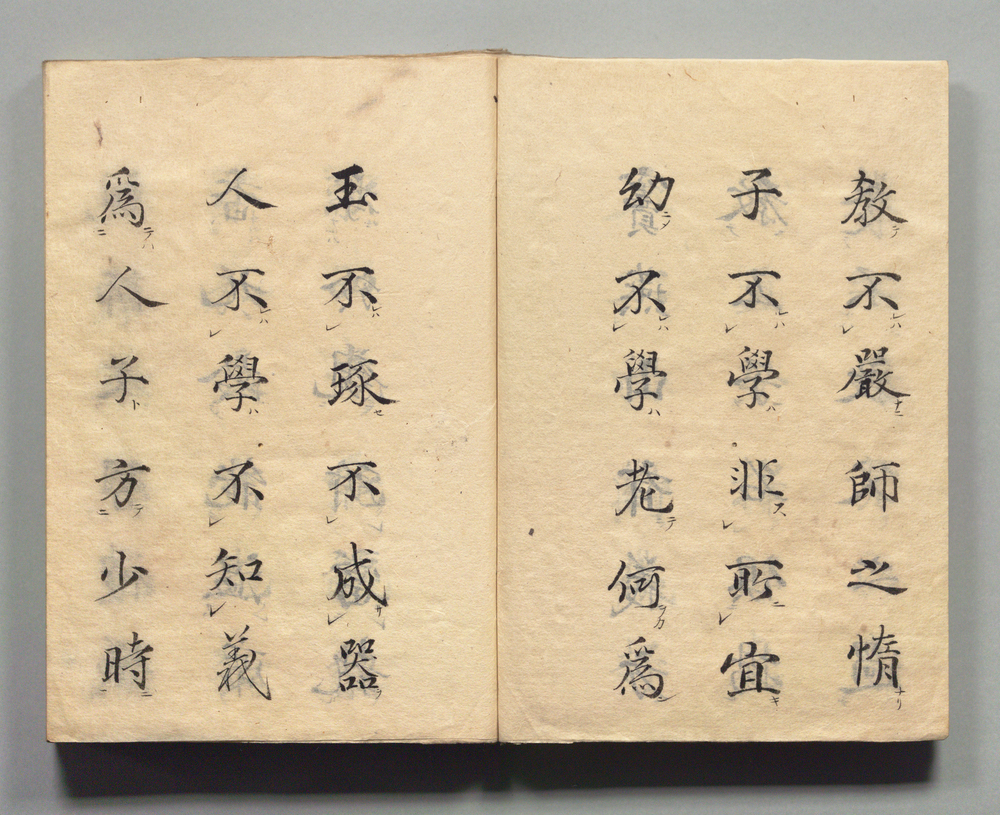 教不嚴師之惰
子不學非所宜
幼不學老何爲
玉不琢不成器
人不學不知義
爲人子方少時